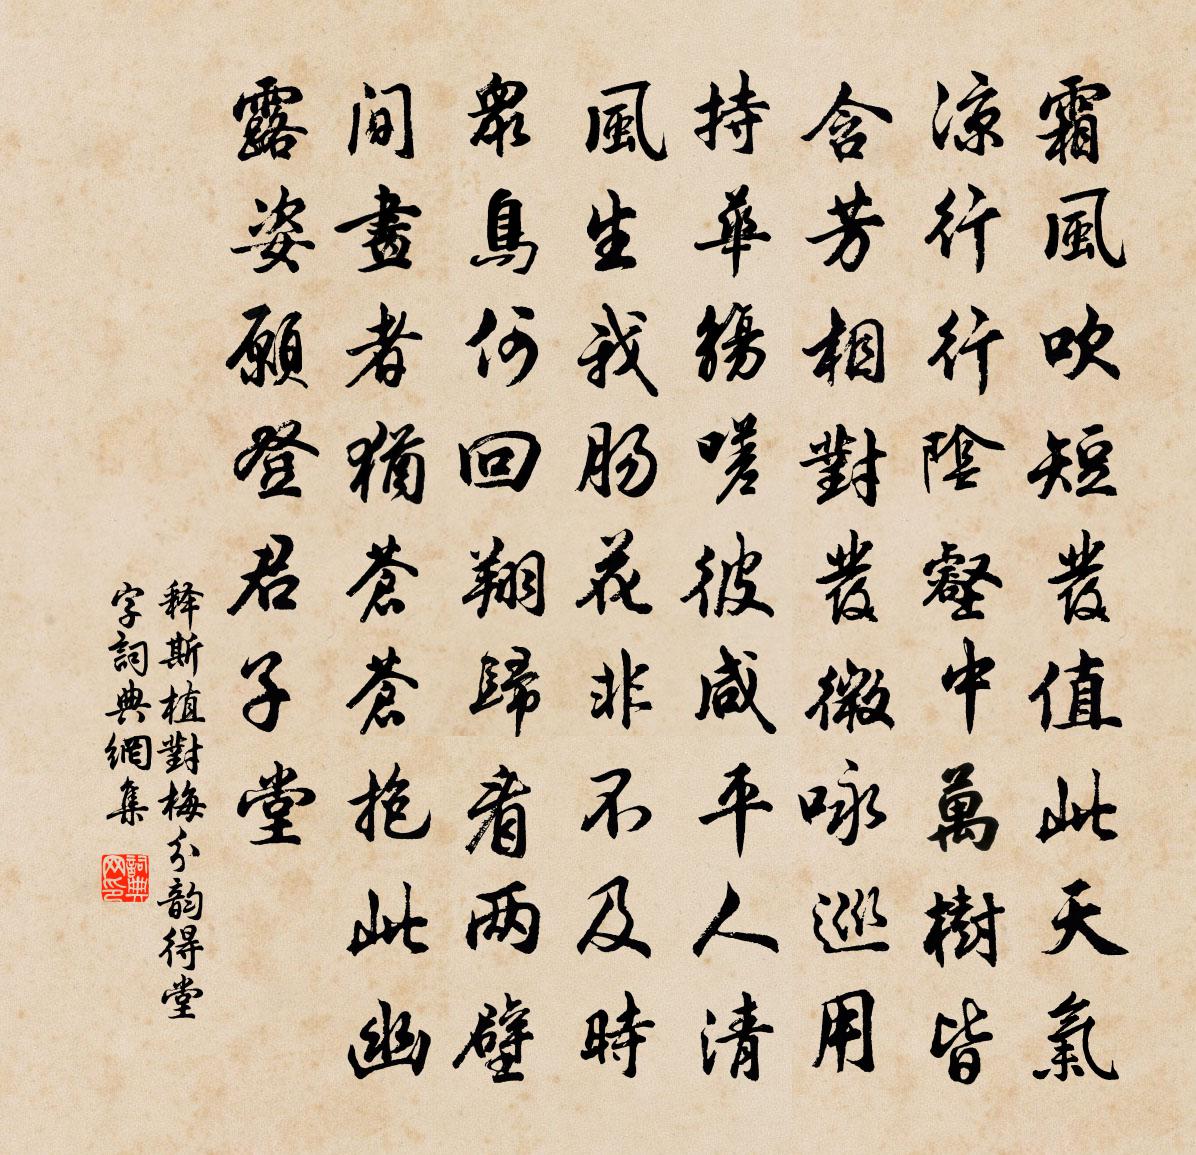 霜風吹短發值此天氣
涼行行陰壑中萬樹皆
含芳相對發微咏巡用
持華觴嗟彼咸平人清
風生我肠花非不及時
眾鳥何回翔歸看两壁
間畫者猶蒼蒼抱此幽
露姿願登君子堂
释斯植對梅分韵得堂
字詞典網集
詞典
网印